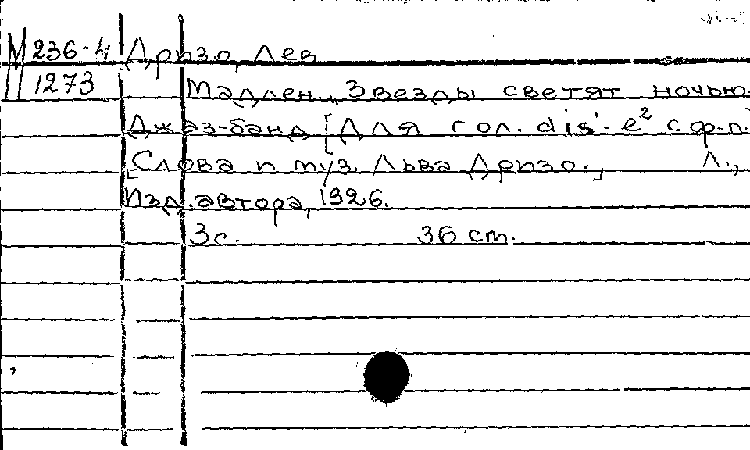 М 236-4 Дризо, Лев
11 1273 Мадлен. Звезды светят ночью.
Джаз-банд [Для гол. dis'-e² с ф.-п.
[Слова и муз. Льва Дризо.] Л.,
Изд. автора, 1926.
3 с. 36 cm.